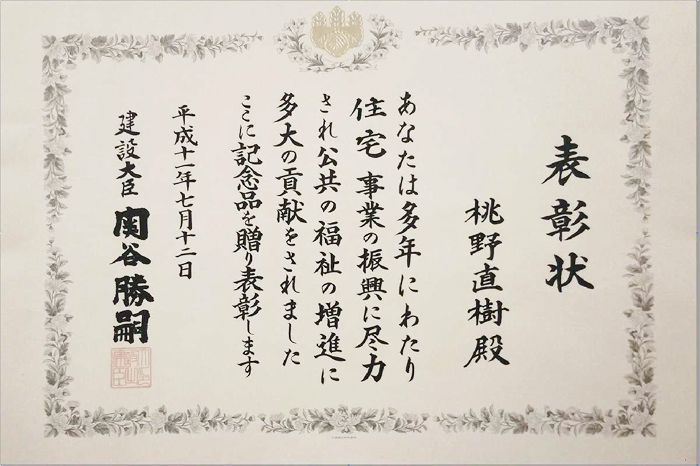 表彰状
桃野直樹殿
あなたは多年にわたり
住宅事業の振興に尽力
され公共の福祉の増進に
多大の貢献をされました
ここに記念品を贈り表彰します
平成十一年七月十二日
建設大臣 関谷勝嗣